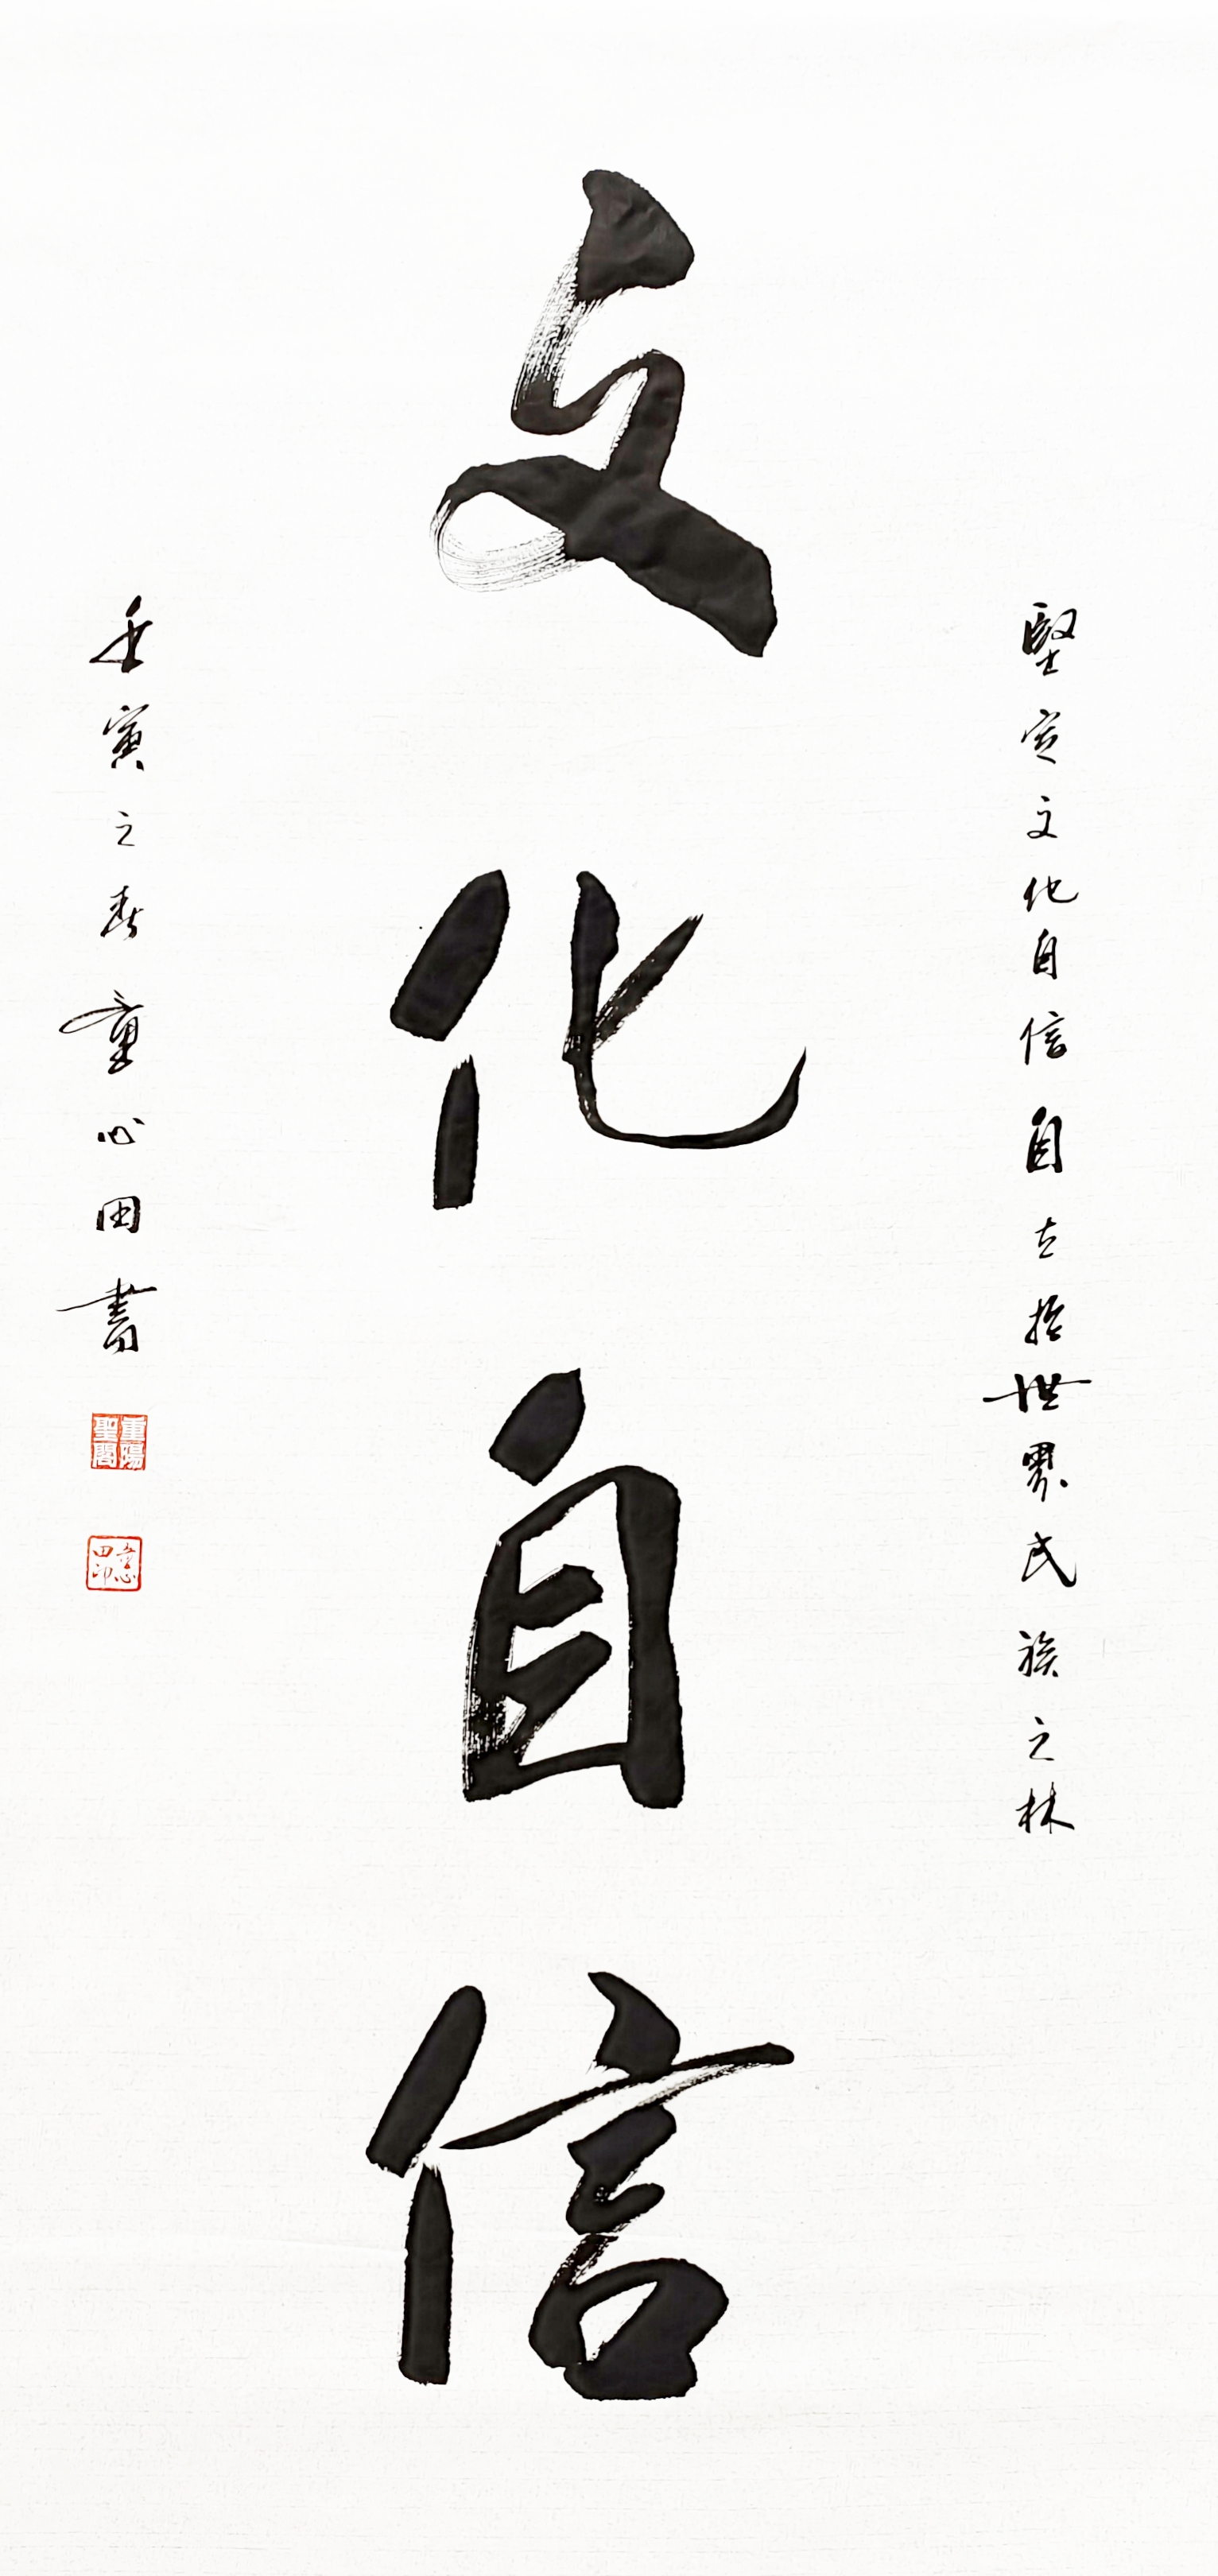 堅定文化自信自立於世界民族之林
文化自信
壬寅之春童心田書
重陽聖閣
童心田印